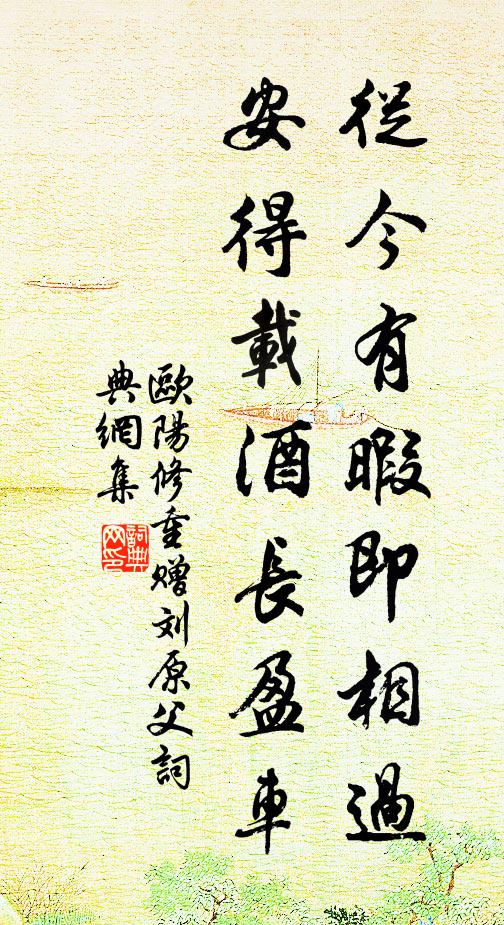 從今有暇即相過
安得載酒長盈車
歐陽修重贈刘原父詞
典網集
詞典网印